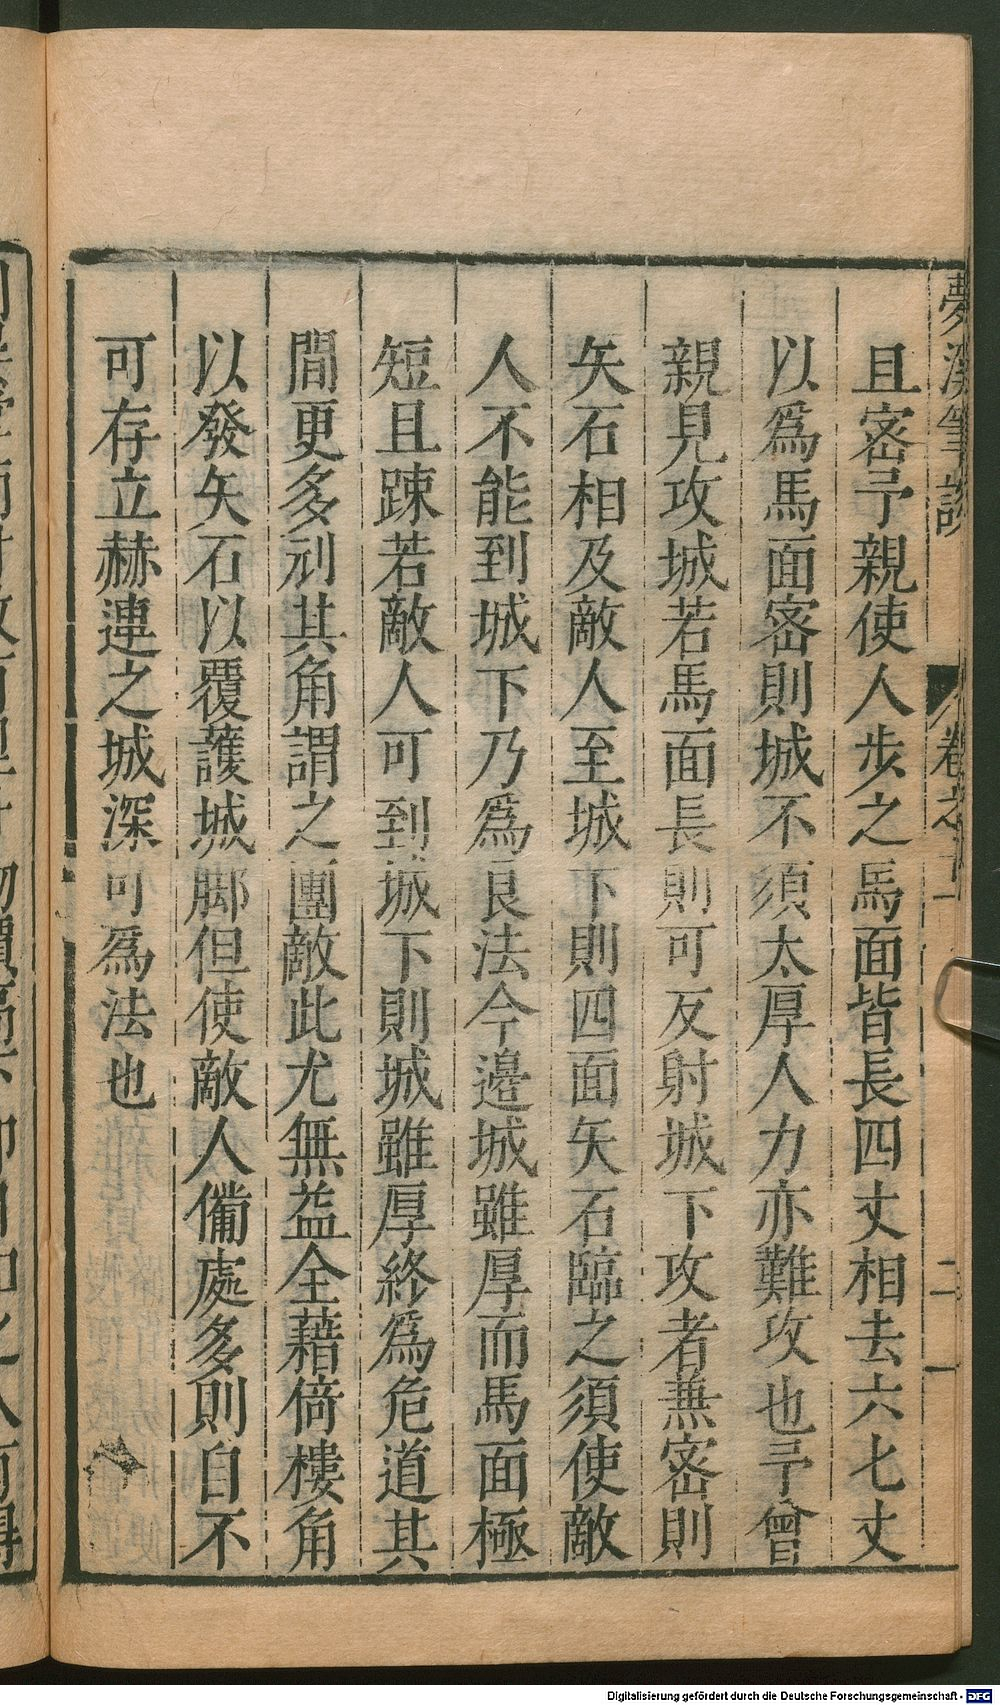 夢溪筆談 卷之十一 二
且密予親使人步之馬面皆長四丈相去六七丈
以爲馬面密則城不須太厚人力亦難攻也予曾
親見攻城若馬面長則可反射城下攻者蕪密則
矢石相及敵人至城下則四面矢石臨之須使敵
人不能到城下乃爲良法今邉城雖厚而馬面極
短且踈若敵人可到城下則城雖厚終爲危道其
間更多刓其角謂之團敵此尤無益全藉倚樓角
以發矢石以覆護城脚但使敵人備處多則自不
可存立赫連之城深可爲法也
Digitalisierung gefördert durch die Deutsche Forschungsgemeinschaft - DFG